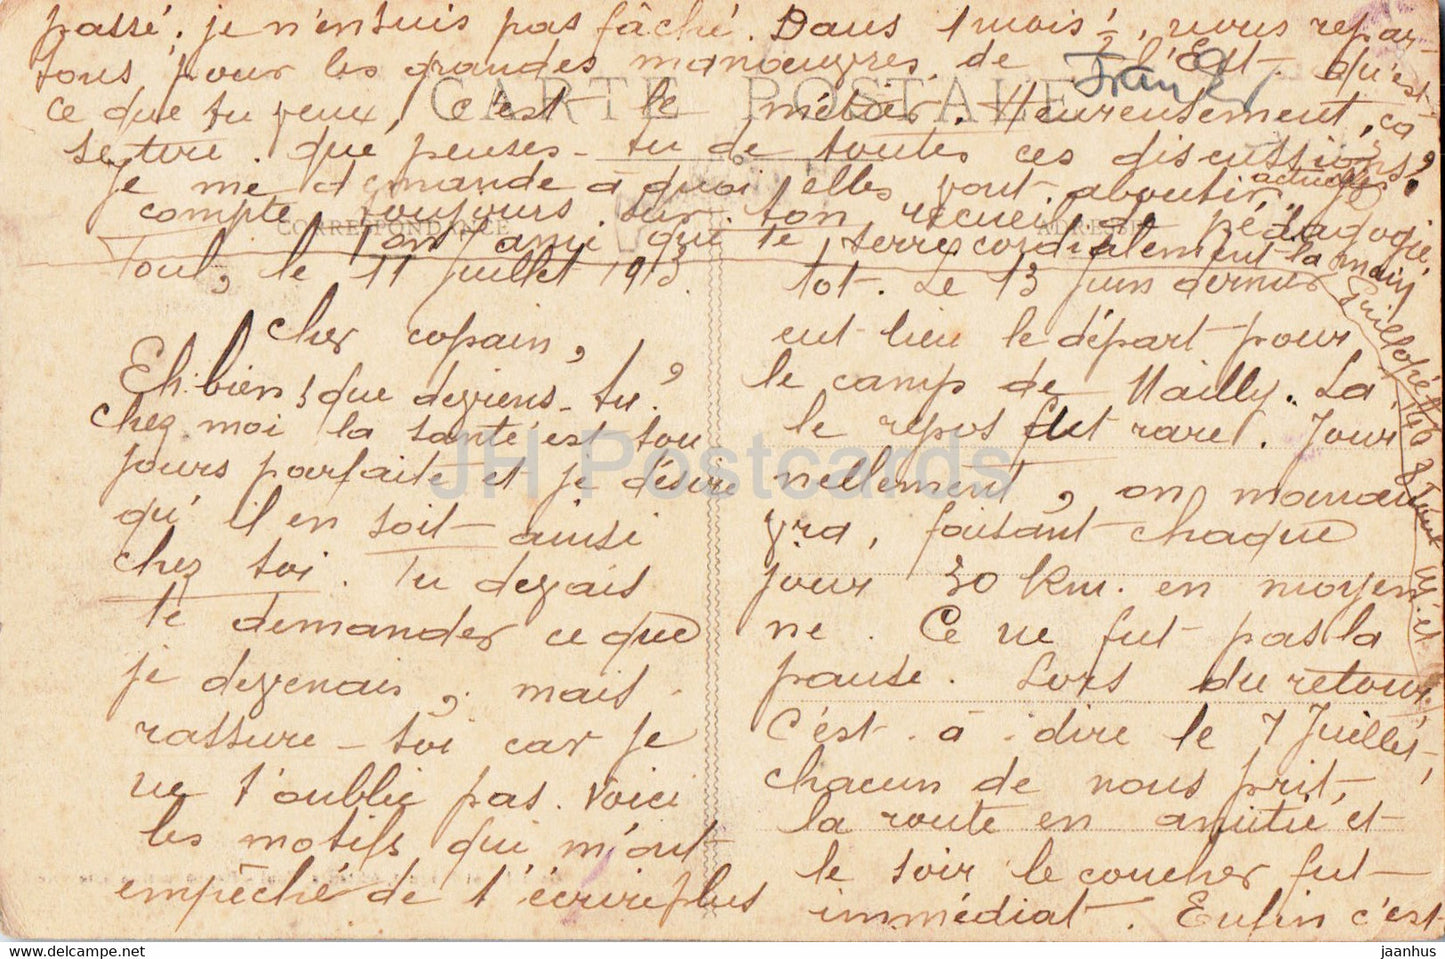 Toul, le 11 Juillet 1913.
Cher copain,
Eh bien, que deviens-tu?
Chez moi la santé est tou
jours parfaite et je désire
qu'il en soit ainsi
chez toi. Tu devais
te demander ce que
je devenais, mais
rassure-toi car je
ne t'oublie pas. Voici
les motifs qui m'ont
empêché de t'écrire plus
tot. Le 13 Juin dernier
eut lieu le départ pour
le camp de Mailly. Là,
le repos fut rare. Jour
nellement, on manœu
vra, faisant chaque
jour 30 km. en moyen
ne. Ce ne fut pas la
pause. Lors du retour,
c'est-à-dire le 7 Juillet,
chacun de nous prit
la route en amitié et
le soir le coucher fut
immédiat. Enfin c'est
passé. je n'en suis pas fâché. Dans 1 mois ½, nous repar-
tons pour les grandes manœuvres de l'Est. qu'est-
ce que tu veux, c'est le métier. Heureusement, ça
se tire. que penses-tu de toutes ces discussions
actuelles?
Je me demande à quoi elles vont aboutir. Je
compte toujours sur ton recueil de pédagogie.
Ton ami qui te serre cordialement la main
CARTE POSTALE
CORRESPONDANCE
ADRESSE
JH Postcards
www.delcampe.net
jaanhus